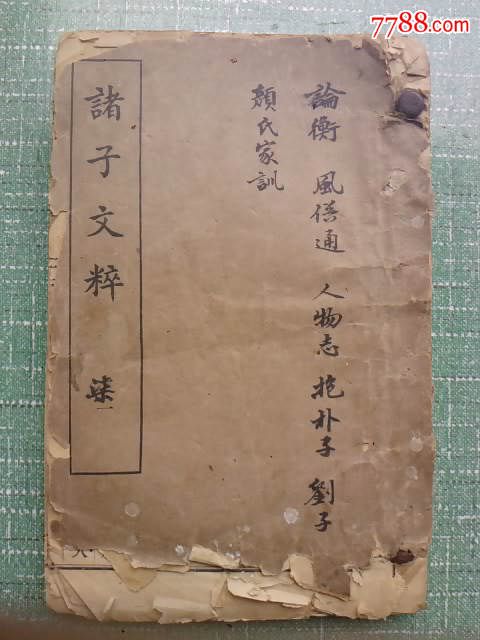 7788.com
論衡 風俗通 人物志 抱朴子 劉子
顏氏家訓
諸子文粹 柒